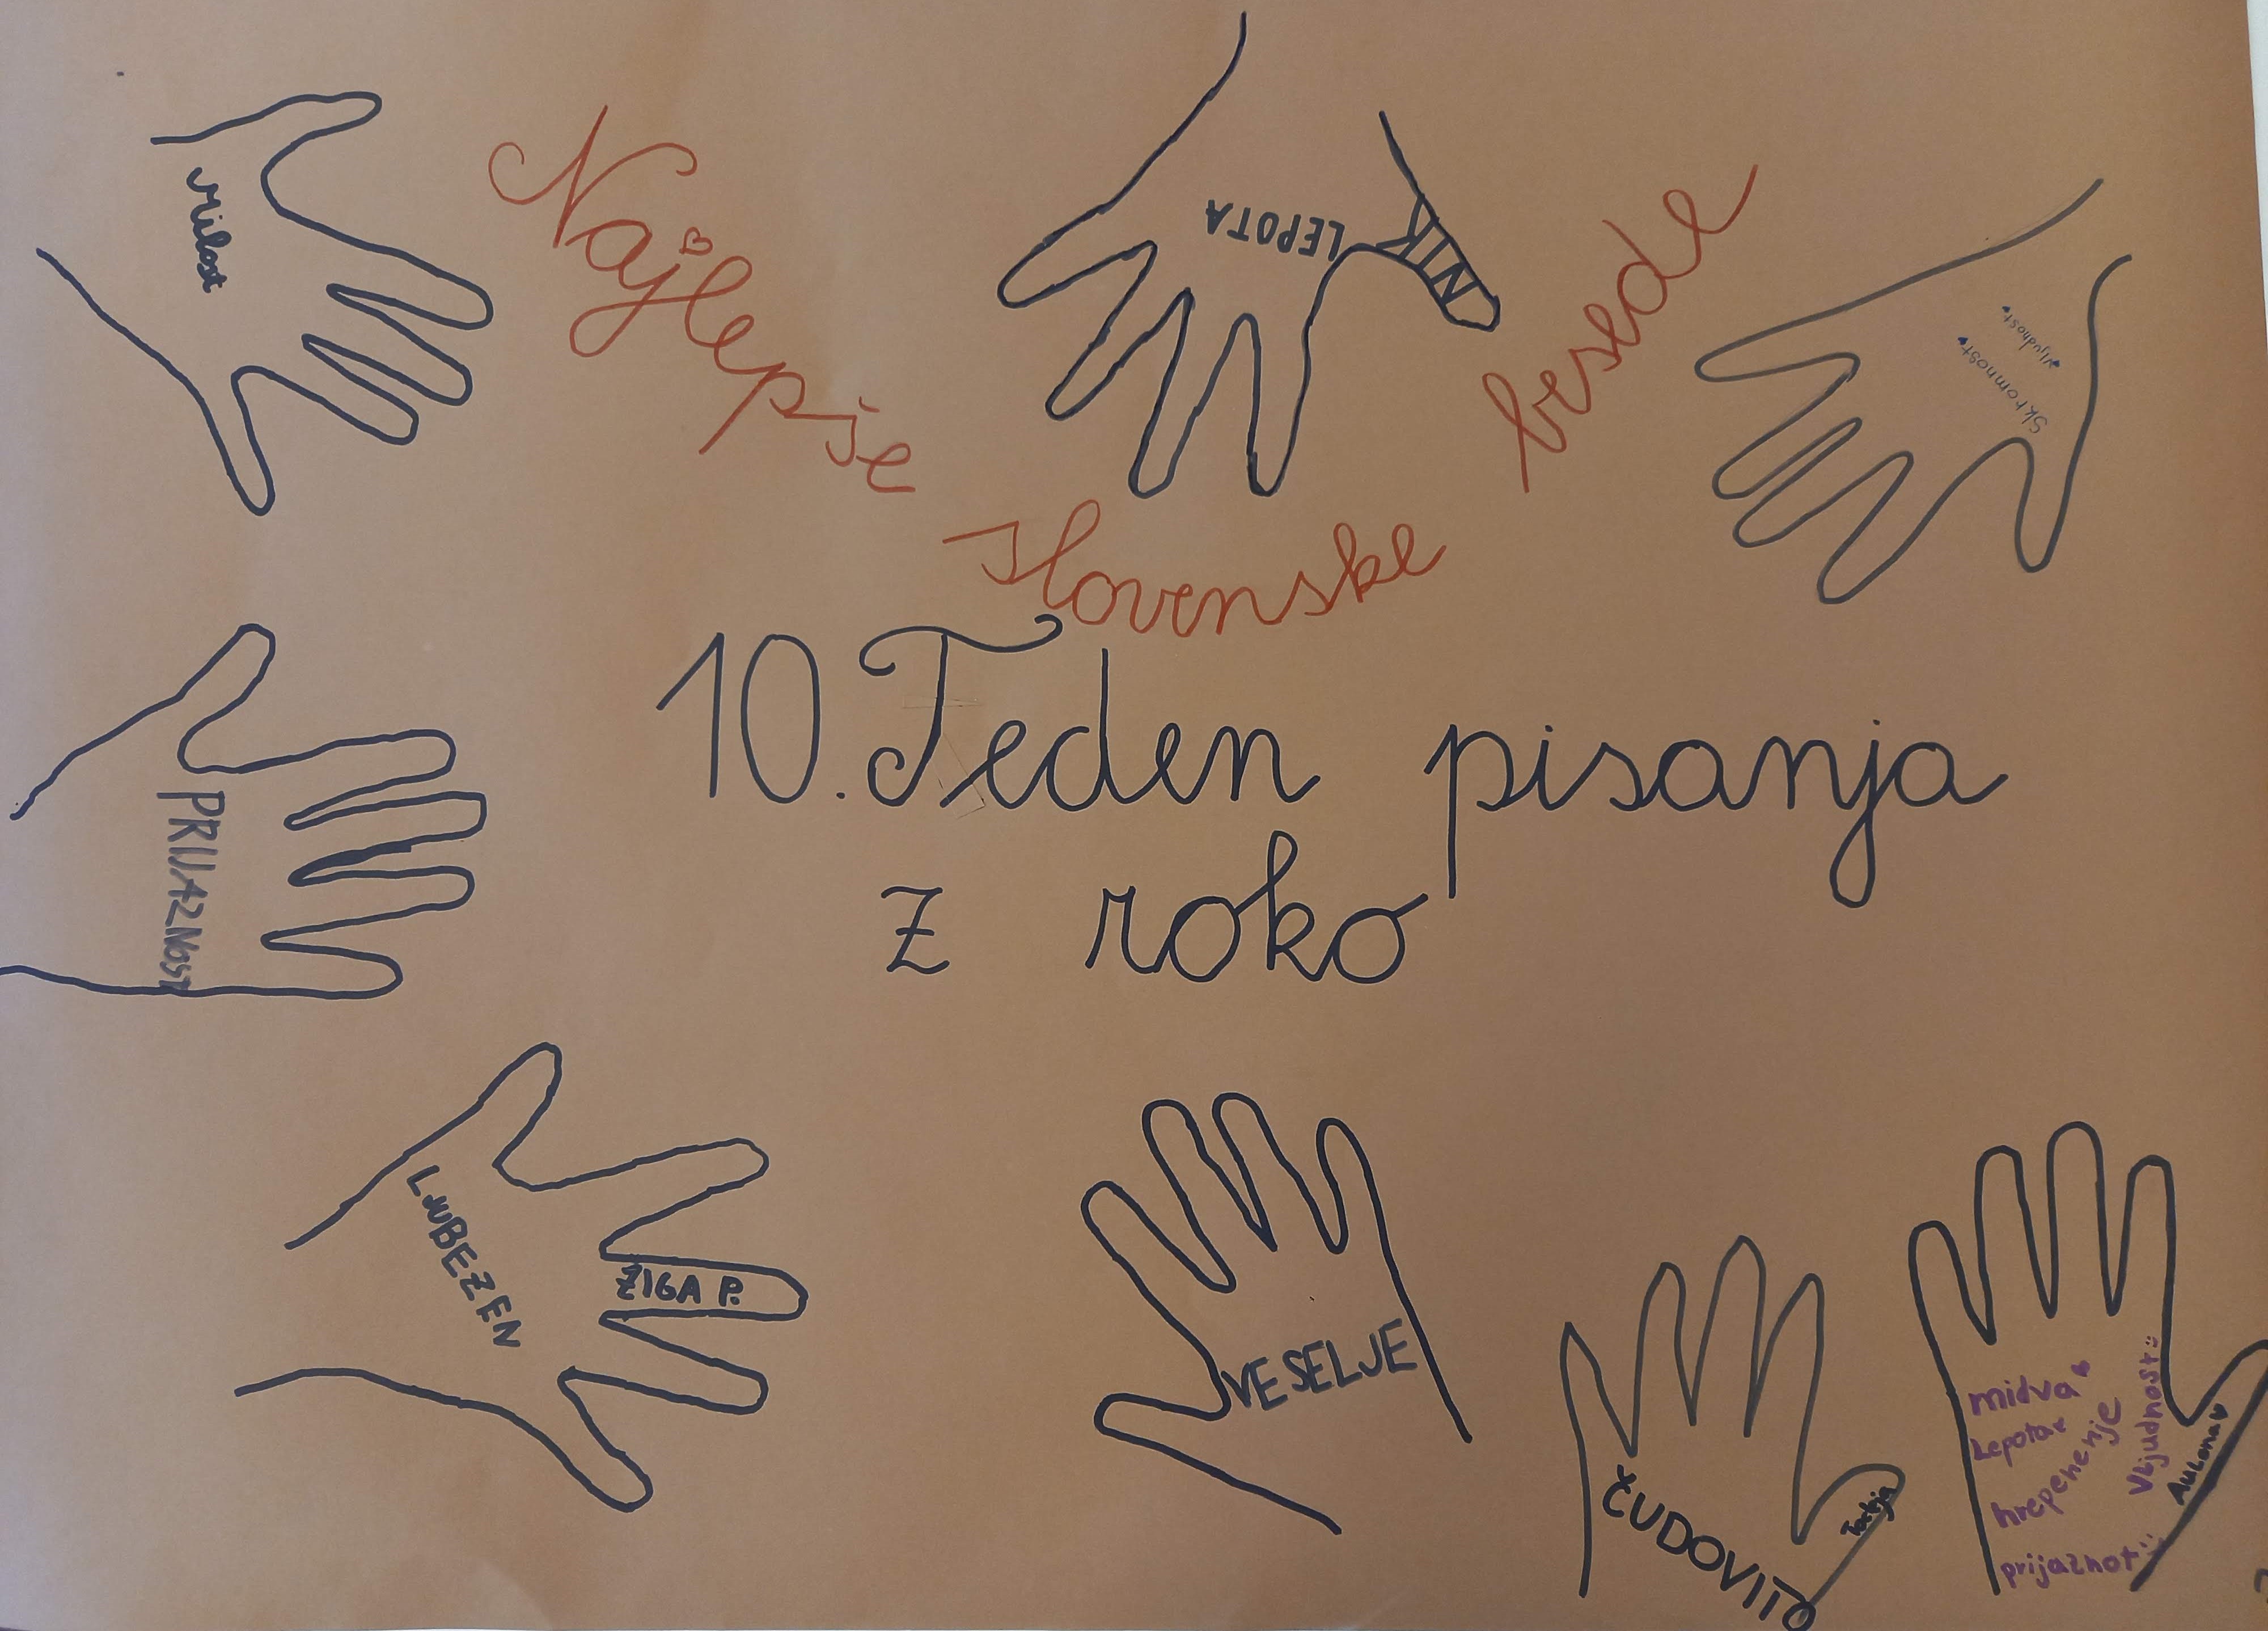 Najlepše slovenske besede
10. Teden pisanja
z roko
milost
LEPOTA
NIK
vljudnost
skromnost
PRIJAZNOST
LJUBEZEN
ŽIGA P.
VESELJE
ČUDOVITO
midva
Lepota
hrepenenje
Vljudnost
prijaznot
Aulona